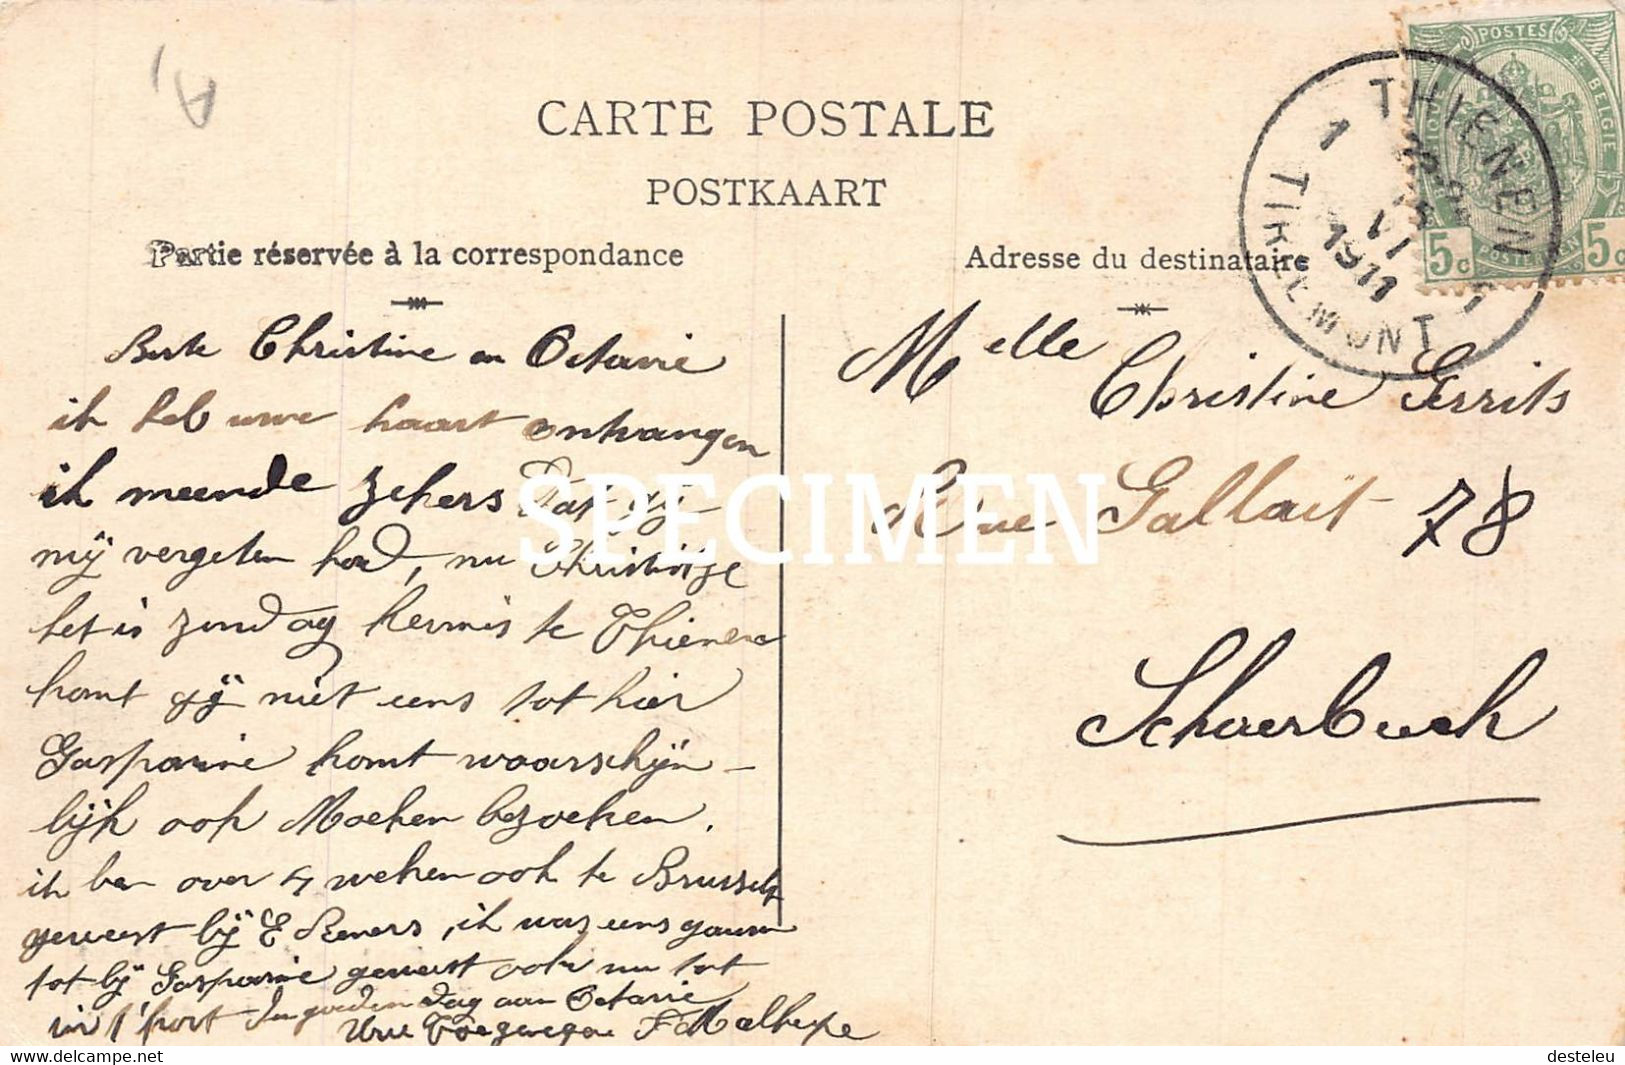 CARTE POSTALE
POSTKAART
Partie réservée à la correspondance
Adresse du destinataire
POSTES
BELGIE
5c 5c
THIENEN
1 1
VI
1911
TIRLEMONT
Beste Christine en Octavie
ik heb uwe kaart ontvangen
ik meende zekers dat gij
mij vergeten had, nu Christintje
het is zondag kermis te Thienen
komt gij niet eens tot hier
Gasparine komt waarschijn-
lijk ook Moeken bezoeken.
ik ben over 4 weken ook te Brussel
geweest bij E Reners, ik was eens gaarn
tot bij Gasparine geweest ook nu tot
in 't kort Den goeden dag aan Octavie
Uwe Toegenegen F Malherbe
Melle Christine Gerrits
Rue Gallait 78
Schaerbeek
SPECIMEN
www.delcampe.net
desteleu